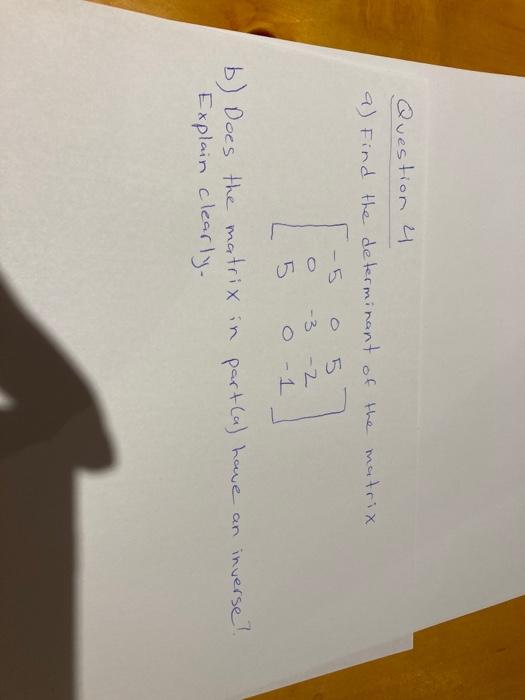 Question 4
a) Find the determinant of the matrix
-5 0 5
0 -3 -2
5 0 -1
b) Does the matrix in part(a) have an inverse?
Explain clearly.